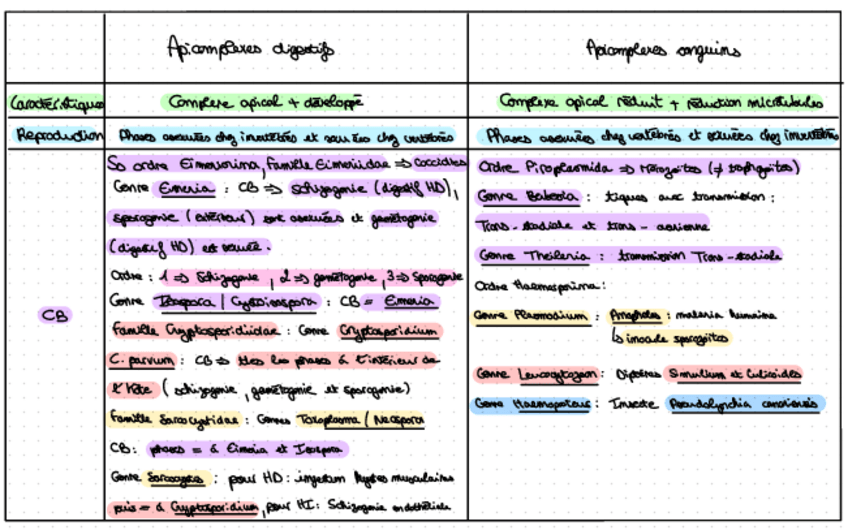 Apicomplexes digestifs
Apicomplexes sanguins
Caractéristiques
Complexe apical + développé
Complexe apical réduit + réduction microtubules
Reproduction
Phases asexuées chez invertébrés et sexuées chez vertébrés
Phases asexuées chez vertébrés et sexuées chez invertébrés
CB
So ordre Eimeriorina, Famille Eimeriidae => Coccidies
Genre Eimeria : CB => schizogonie (digestif HD),
sporogonie (extérieur) sont asexuées et gamétogonie
(digestif HD) est sexuée.
Ordre : 1 => Schizogonie, 2 => gamétogonie, 3 => sporogonie
Genre Isospora / Cystoisospora : CB = Eimeria
Famille Cryptosporidiidae : Genre Cryptosporidium
C. parvum : CB => ttes les phases à l'intérieur de
l'hôte (schizogonie, gamétogonie et sporogonie)
Famille Sarcocystidae : Genres Toxoplasma / Neospora
CB : phases = à Eimeria et Isospora
Genre Sarcocystis : pour HD : ingestion kystes musculaires
puis = à Cryptosporidium, pour HI : Schizogonie endothéliale
Ordre Piroplasmida => Mérozoites (≠ trophozoites)
Genre Babesia : tiques avec transmission :
Trans-stadiale et trans-ovarienne
Genre Theileria : transmission Trans-stadiale
Ordre Haemosporina :
Genre Plasmodium : Anopheles : malaria humaine
↳ inocule sporozoites
Genre Leucocytozoon : Diptères Simulium et Culicoides
Genre Haemoproteus : Insecte Pseudolynchia canariensis